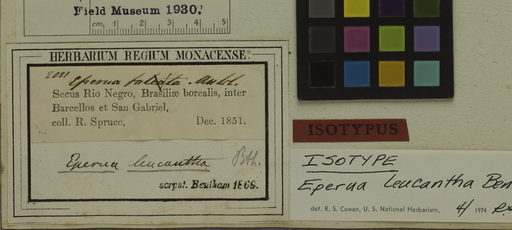 Field Museum 1930.
cm, 1 2 3 4 5
HERBARIUM REGIUM MONACENSE.
2021 Eperua
Secus Rio Negro, Brasiliæ borealis, inter
Barcellos et San Gabriel,
coll. R. Spruce, Dec. 1851.
Eperua leucantha Bth.
scrpst. Bentham 1868.
ISOTYPUS
ISOTYPE
Eperua leucantha Ben
det. R. S. Cowan, U. S. National Herbarium, 4/ 1974